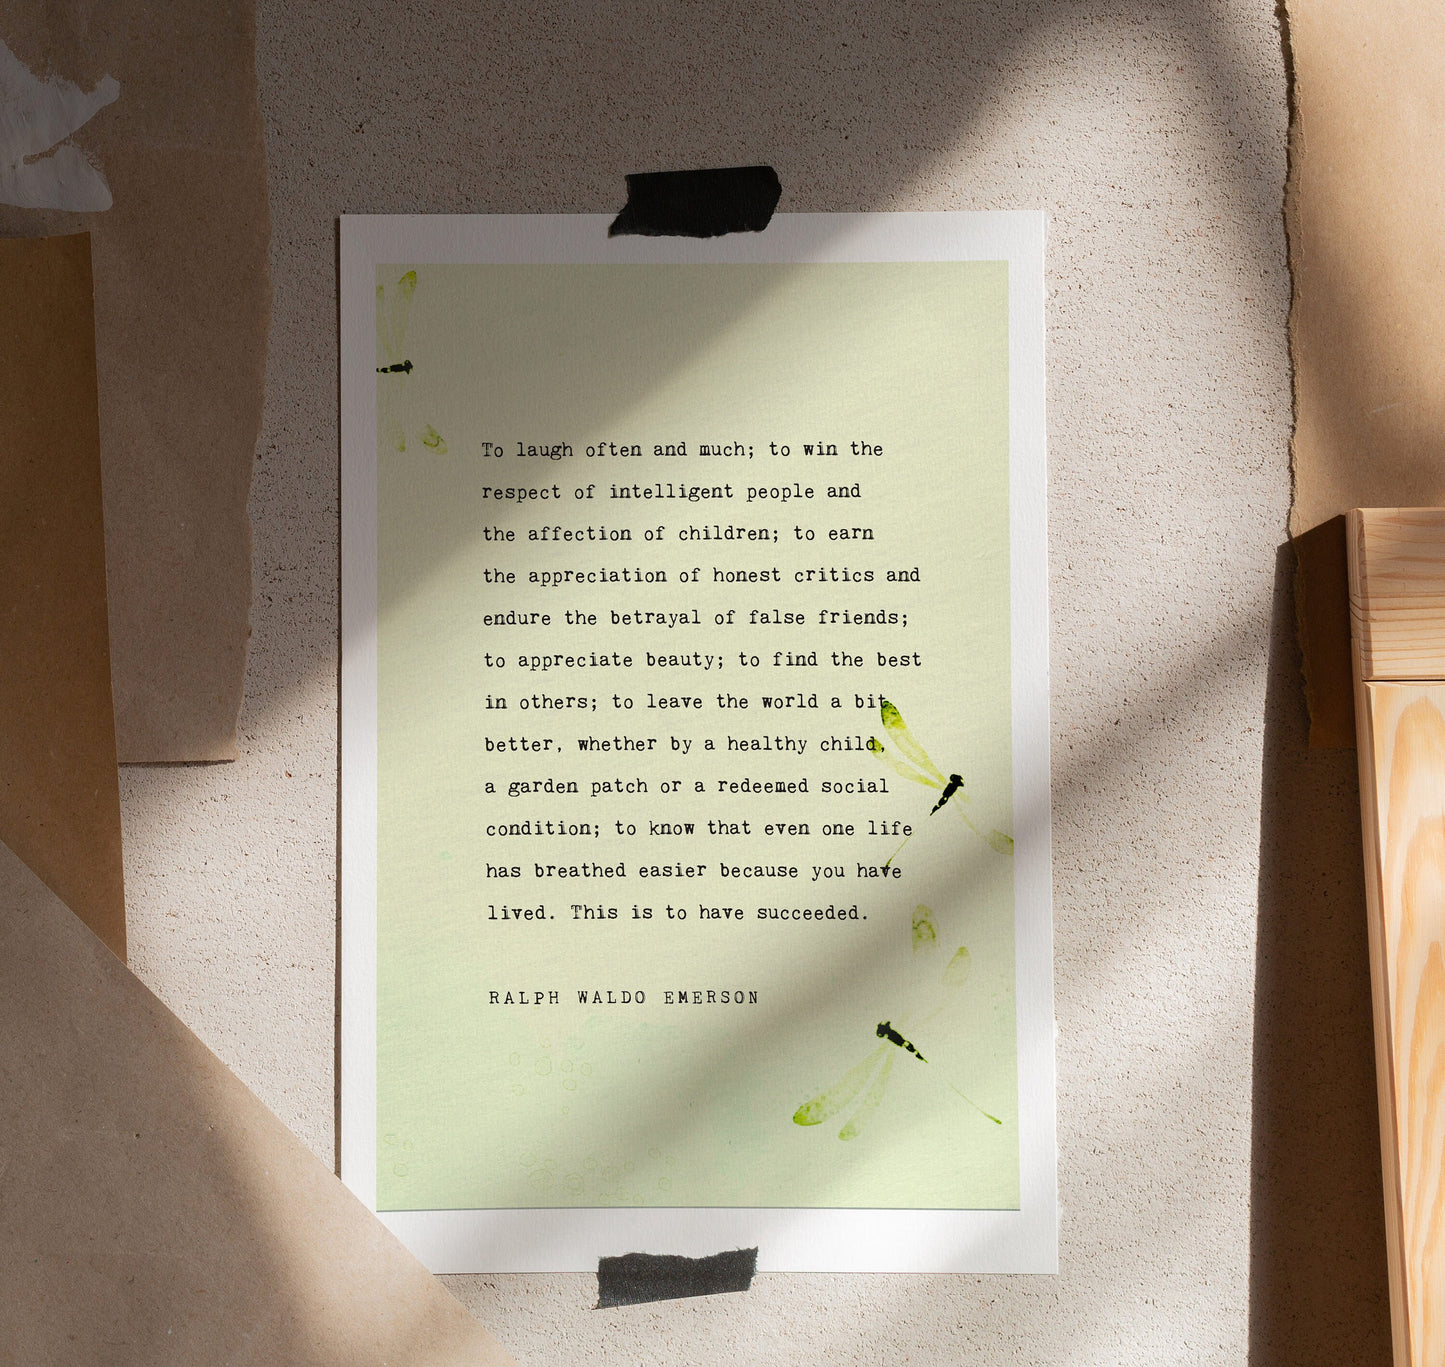 To laugh often and much; to win the
respect of intelligent people and
the affection of children; to earn
the appreciation of honest critics and
endure the betrayal of false friends;
to appreciate beauty; to find the best
in others; to leave the world a bit
better, whether by a healthy child,
a garden patch or a redeemed social
condition; to know that even one life
has breathed easier because you have
lived. This is to have succeeded.
RALPH WALDO EMERSON